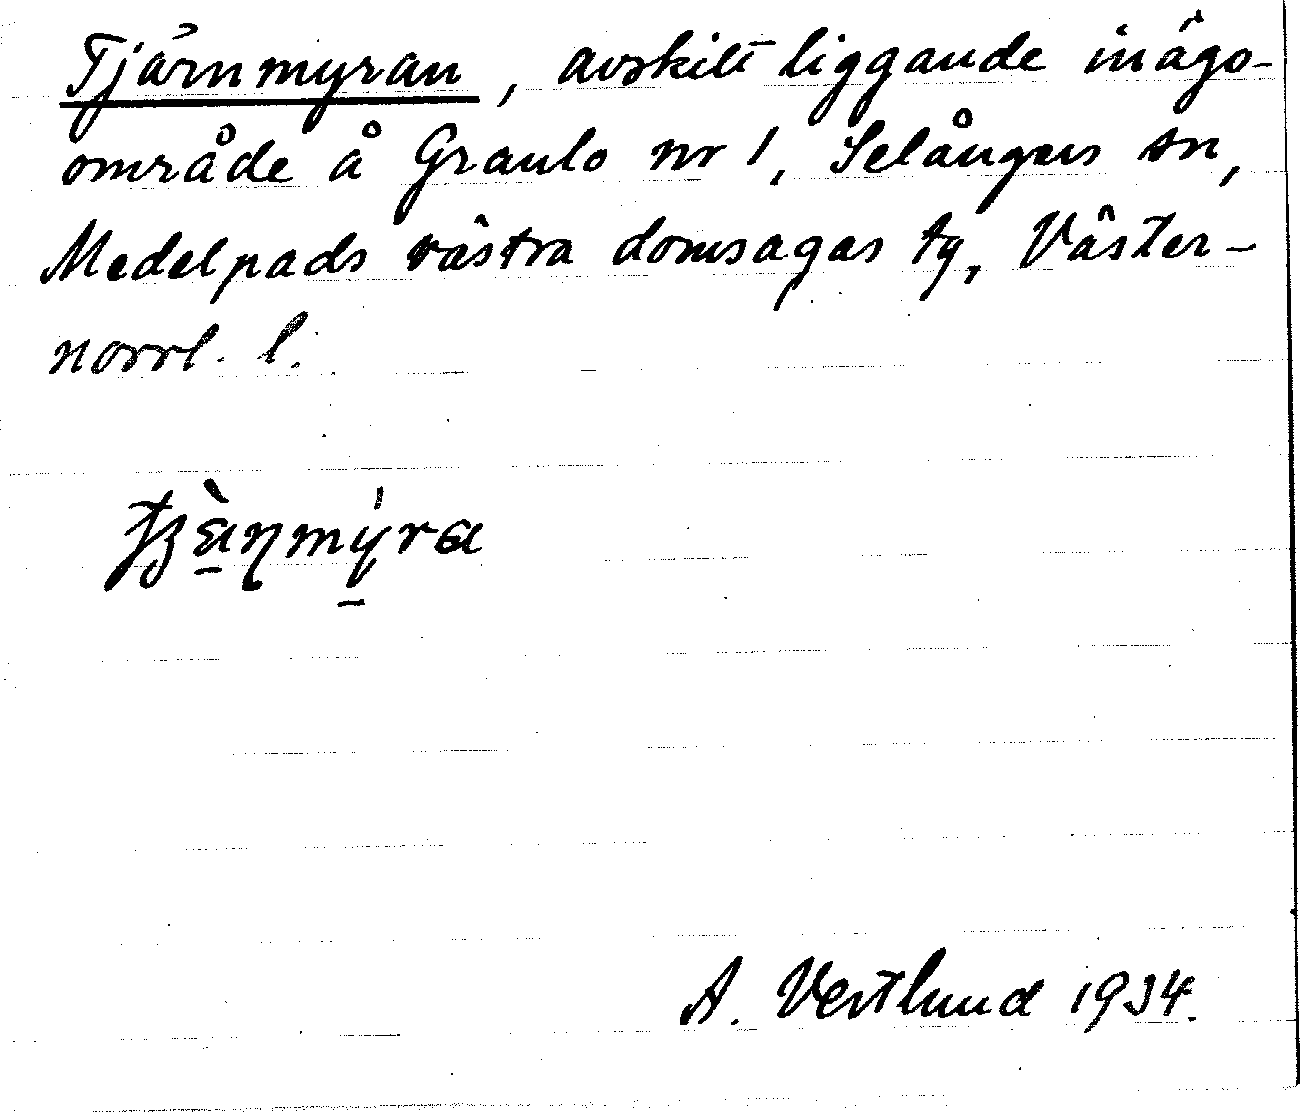 Tjärnmyran, avskilt liggande inägo-
område å Granlo nr 1, Selångers sn,
Medelpads västra domsagas tg, Väster-
norrl. l.
A. Vestlund 1934.